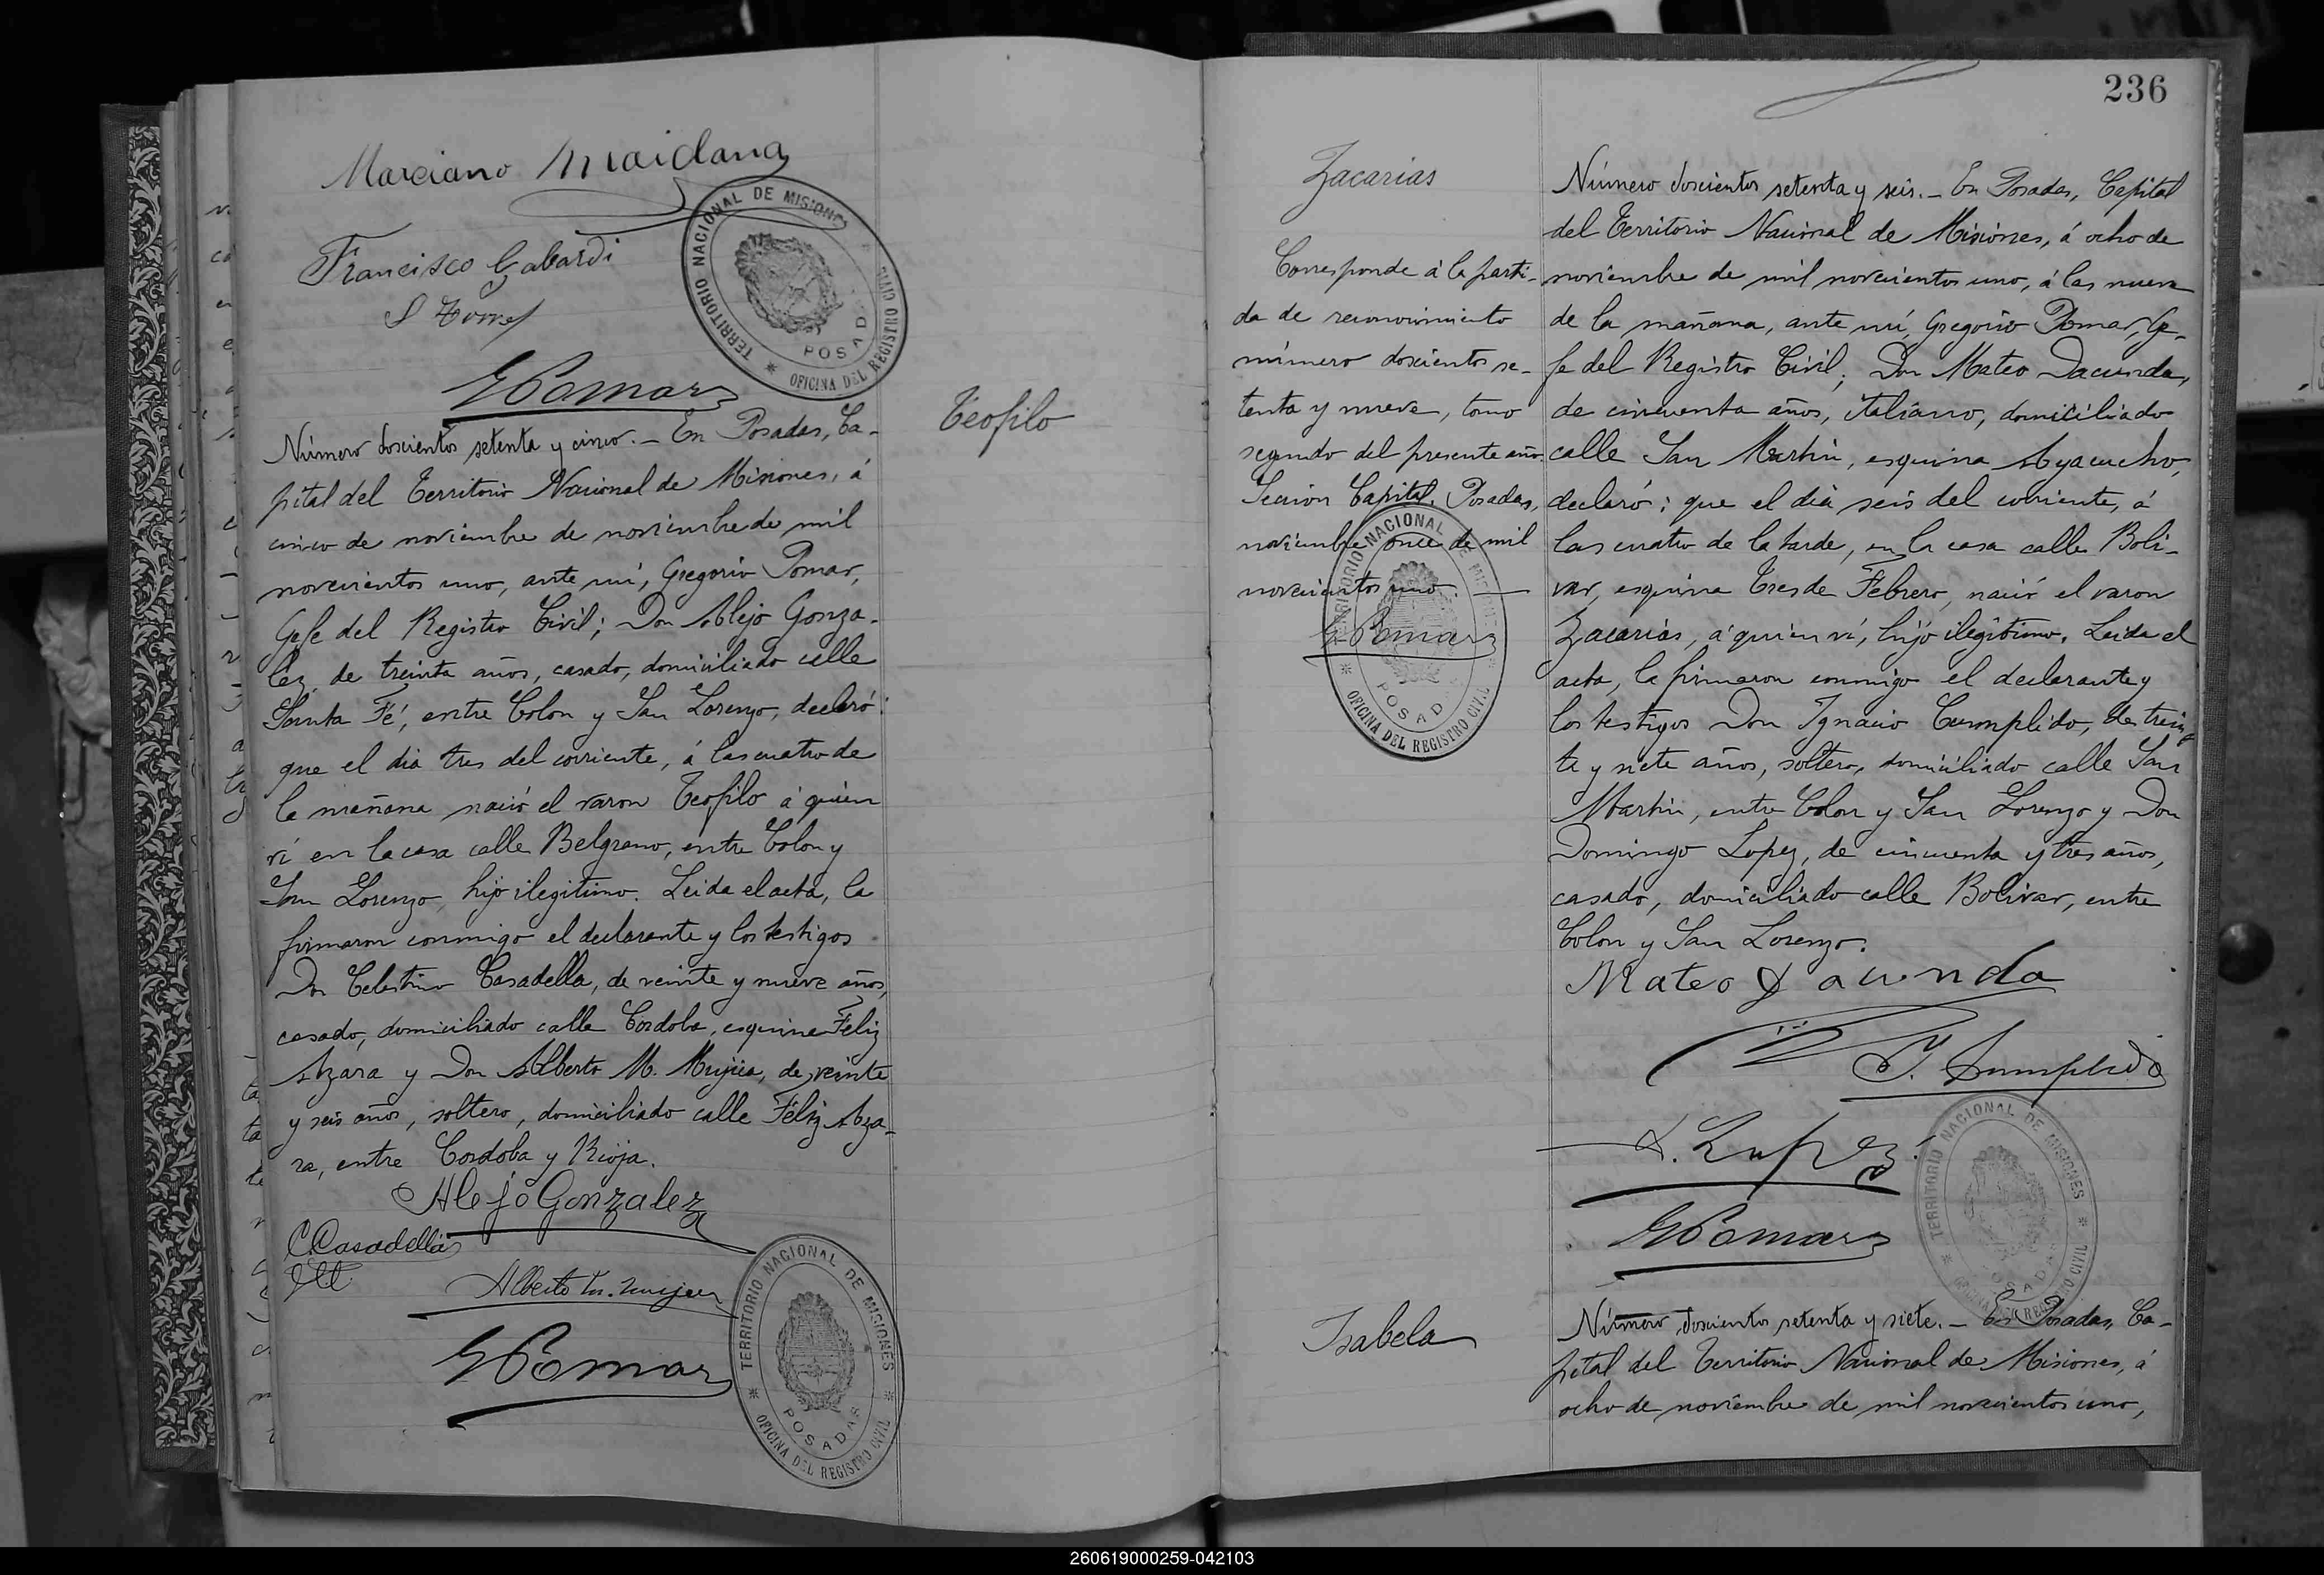 Marciano Maidana
Francisco Gabardi
S Torres
TERRITORIO NACIONAL DE MISIONES
POSADAS
OFICINA DEL REGISTRO CIVIL
GPomar
Teofilo
Número doscientos setenta y cinco.- En Posadas, Ca-
pital del Territorio Nacional de Misiones, á
cinco de noviembre de noviembre de mil
novecientos uno, ante mí, Gregorio Pomar,
Gefe del Registro Civil; Don Alejo Gonza-
lez, de treinta años, casado, domiciliado calle
Santa Fé, entre Colon y San Lorenzo, declaró:
que el dia tres del corriente, á las cuatro de
la mañana nació el varon Teofilo á quien
ví en la casa calle Belgrano, entre Colon y
San Lorenzo, hijo ilegitimo. Leida el acta, la
firmaron conmigo el declarante y los testigos
Don Celestino Casadella, de veinte y nueve años,
casado, domiciliado calle Cordoba, esquina Feliz
Azara y Don Alberto M. Mujica, de veinte
y seis años, soltero, domiciliado calle Féliz Aza-
ra, entre Cordoba y Rioja.
Alejo Gonzalez
C. Casadella
Alberto M. Mujica
GPomar
TERRITORIO NACIONAL DE MISIONES
POSADAS
OFICINA DEL REGISTRO CIVIL
236
Zacarias
Corresponde á la parti-
da de reconocimiento
número doscientos se-
tenta y nueve, tomo
segundo del presente año.
Seccion Capital. Posadas,
noviembre once de mil
novecientos uno.
GPomar
TERRITORIO NACIONAL DE MISIONES
POSADAS
OFICINA DEL REGISTRO CIVIL
Número doscientos setenta y seis.- En Posadas, Capital
del Territorio Nacional de Misiones, á ocho de
noviembre de mil novecientos uno, á las nueve
de la mañana, ante mí, Gregorio Pomar, Ge-
fe del Registro Civil; Don Mateo Dacunda,
de cincuenta años, italiano, domiciliado
calle San Martin, esquina Ayacucho,
declaró: que el dia seis del corriente, á
las cuatro de la tarde, en la casa calle Boli-
var, esquina Tres de Febrero, nació el varon
Zacarias, á quien ví, hijo ilegitimo. Leida el
acta, la firmaron conmigo el declarante y
los testigos Don Ignacio Cumplido, de trein
ta y siete años, soltero, domiciliado calle San
Martin, entre Colon y San Lorenzo y Don
Domingo Lopez, de cincuenta y tres años,
casado, domiciliado calle Bolivar, entre
Colon y San Lorenzo.
Mateo Dacunda
I. Cumplido
D. Lopez
GPomar
TERRITORIO NACIONAL DE MISIONES
POSADAS
OFICINA DEL REGISTRO CIVIL
Isabela
Número doscientos setenta y siete.- En Posadas, Ca-
pital del Territorio Nacional de Misiones, á
ocho de noviembre de mil novecientos uno,
260619000259-042103